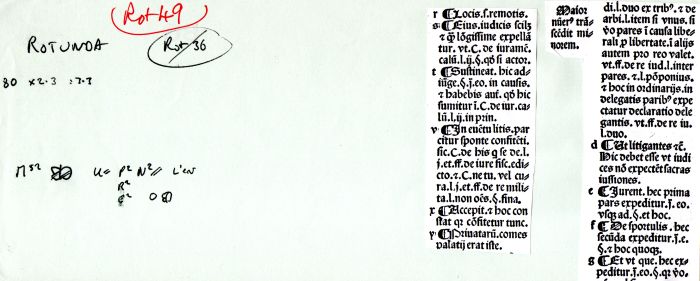 Rot 49
ROTUNDA
Rot 36
80 x 2.3 : 2.3
M⁵² U= P² N² Lieu
R²
C² O
r ¶Locis.s.remotis.
s ¶Eius.iudicis scilicet
⁊ ꝙ lōgissime expellā
tur. vt.C.de iuramē.
calū.l.ij.§.qđ si actor.
t ¶Sustineat. hic ad
iūge.§.j.eo. in causis.
⁊ habebis aut̄. qđ hic
sumitur ī.C.de iur.ca
lū.l.ij.in prin.
v ¶In euētu litis.par
citur sponte confitēti.
sic.C.de his q se de.l.
j.et.ff.de iure fisc.edi-
cto.⁊.C.ne tu. vel cu
ra.l.j.et.ff.de re mili-
ta.l.non oēs.§.fina.
x ¶Accepit.⁊ hoc con
stat qr confitetur tunc.
y ¶Priuatarū.comes
palatij erat iste.
Maior
nūer⁹ trā-
scēdit mi-
norem.
di.l.duo ex trib⁹.⁊ de
arbi.l.item si vnus.si
v̊o pares ī causa libe-
rali ꝓ libertate.ī alijs
autem pro reo valet.
vt.ff.de re iud.l.inter
pares.⁊.l.pōponius.
⁊ hoc in ordinarijs.in
delegatis parib⁹ expe
ctatur declaratio dele
gantis.vt.ff.de re iu.
l.duo.
d ¶Ut litigantes ⁊c̄.
Hic debet esse vt iudi
ces nō expectēt sacras
iussiones.
e ¶Iurent.hec prima
pars expeditur.j.eo.
vsqꝫ ad.§.et hoc.
f ¶De sportulis.hec
secūda expeditur.j.e.
§.⁊ hoc quoqꝫ.
g ¶Et vt que.hec ex-
peditur.j.eo.§.qr v̊o-